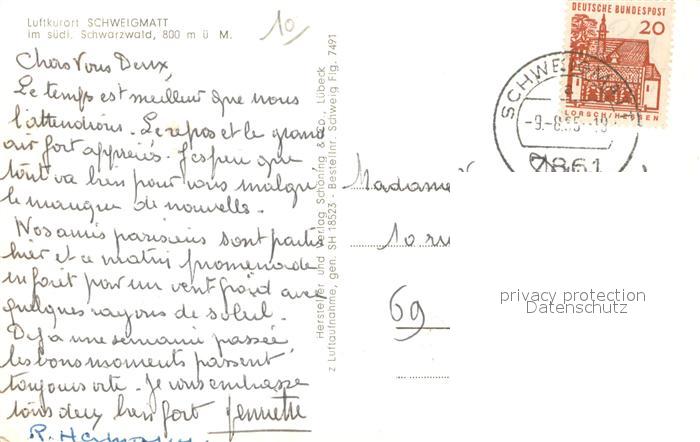 Luftkurort SCHWEIGMATT
im südl. Schwarzwald, 800 m ü M.
10
Chers Vous Deux,
Le temps est meilleur que nous
l'attendions. Le repos et le grand
air fort appréciés. J'espère que
tout va bien pour vous malgré
le manque de nouvelles.
Nos amis parisiens sont partis
hier et ce matin promenade
en forêt par un vent froid avec
quelques rayons de soleil.
Déjà une semaine passée,
les bons moments passent
toujours vite. Je vous embrasse
tous deux bien fort
Hersteller und Verlag Schöning & Co., Lübeck
z Luftaufnahme, gen. SH 18523 - Bestellnr. Schweig Fig. 7491
DEUTSCHE BUNDESPOST
20
LORSCH/HESSEN
SCHWEIGM
-9.-8.65-18
7861
Madame
10 ru
69
privacy protection
Datenschutz